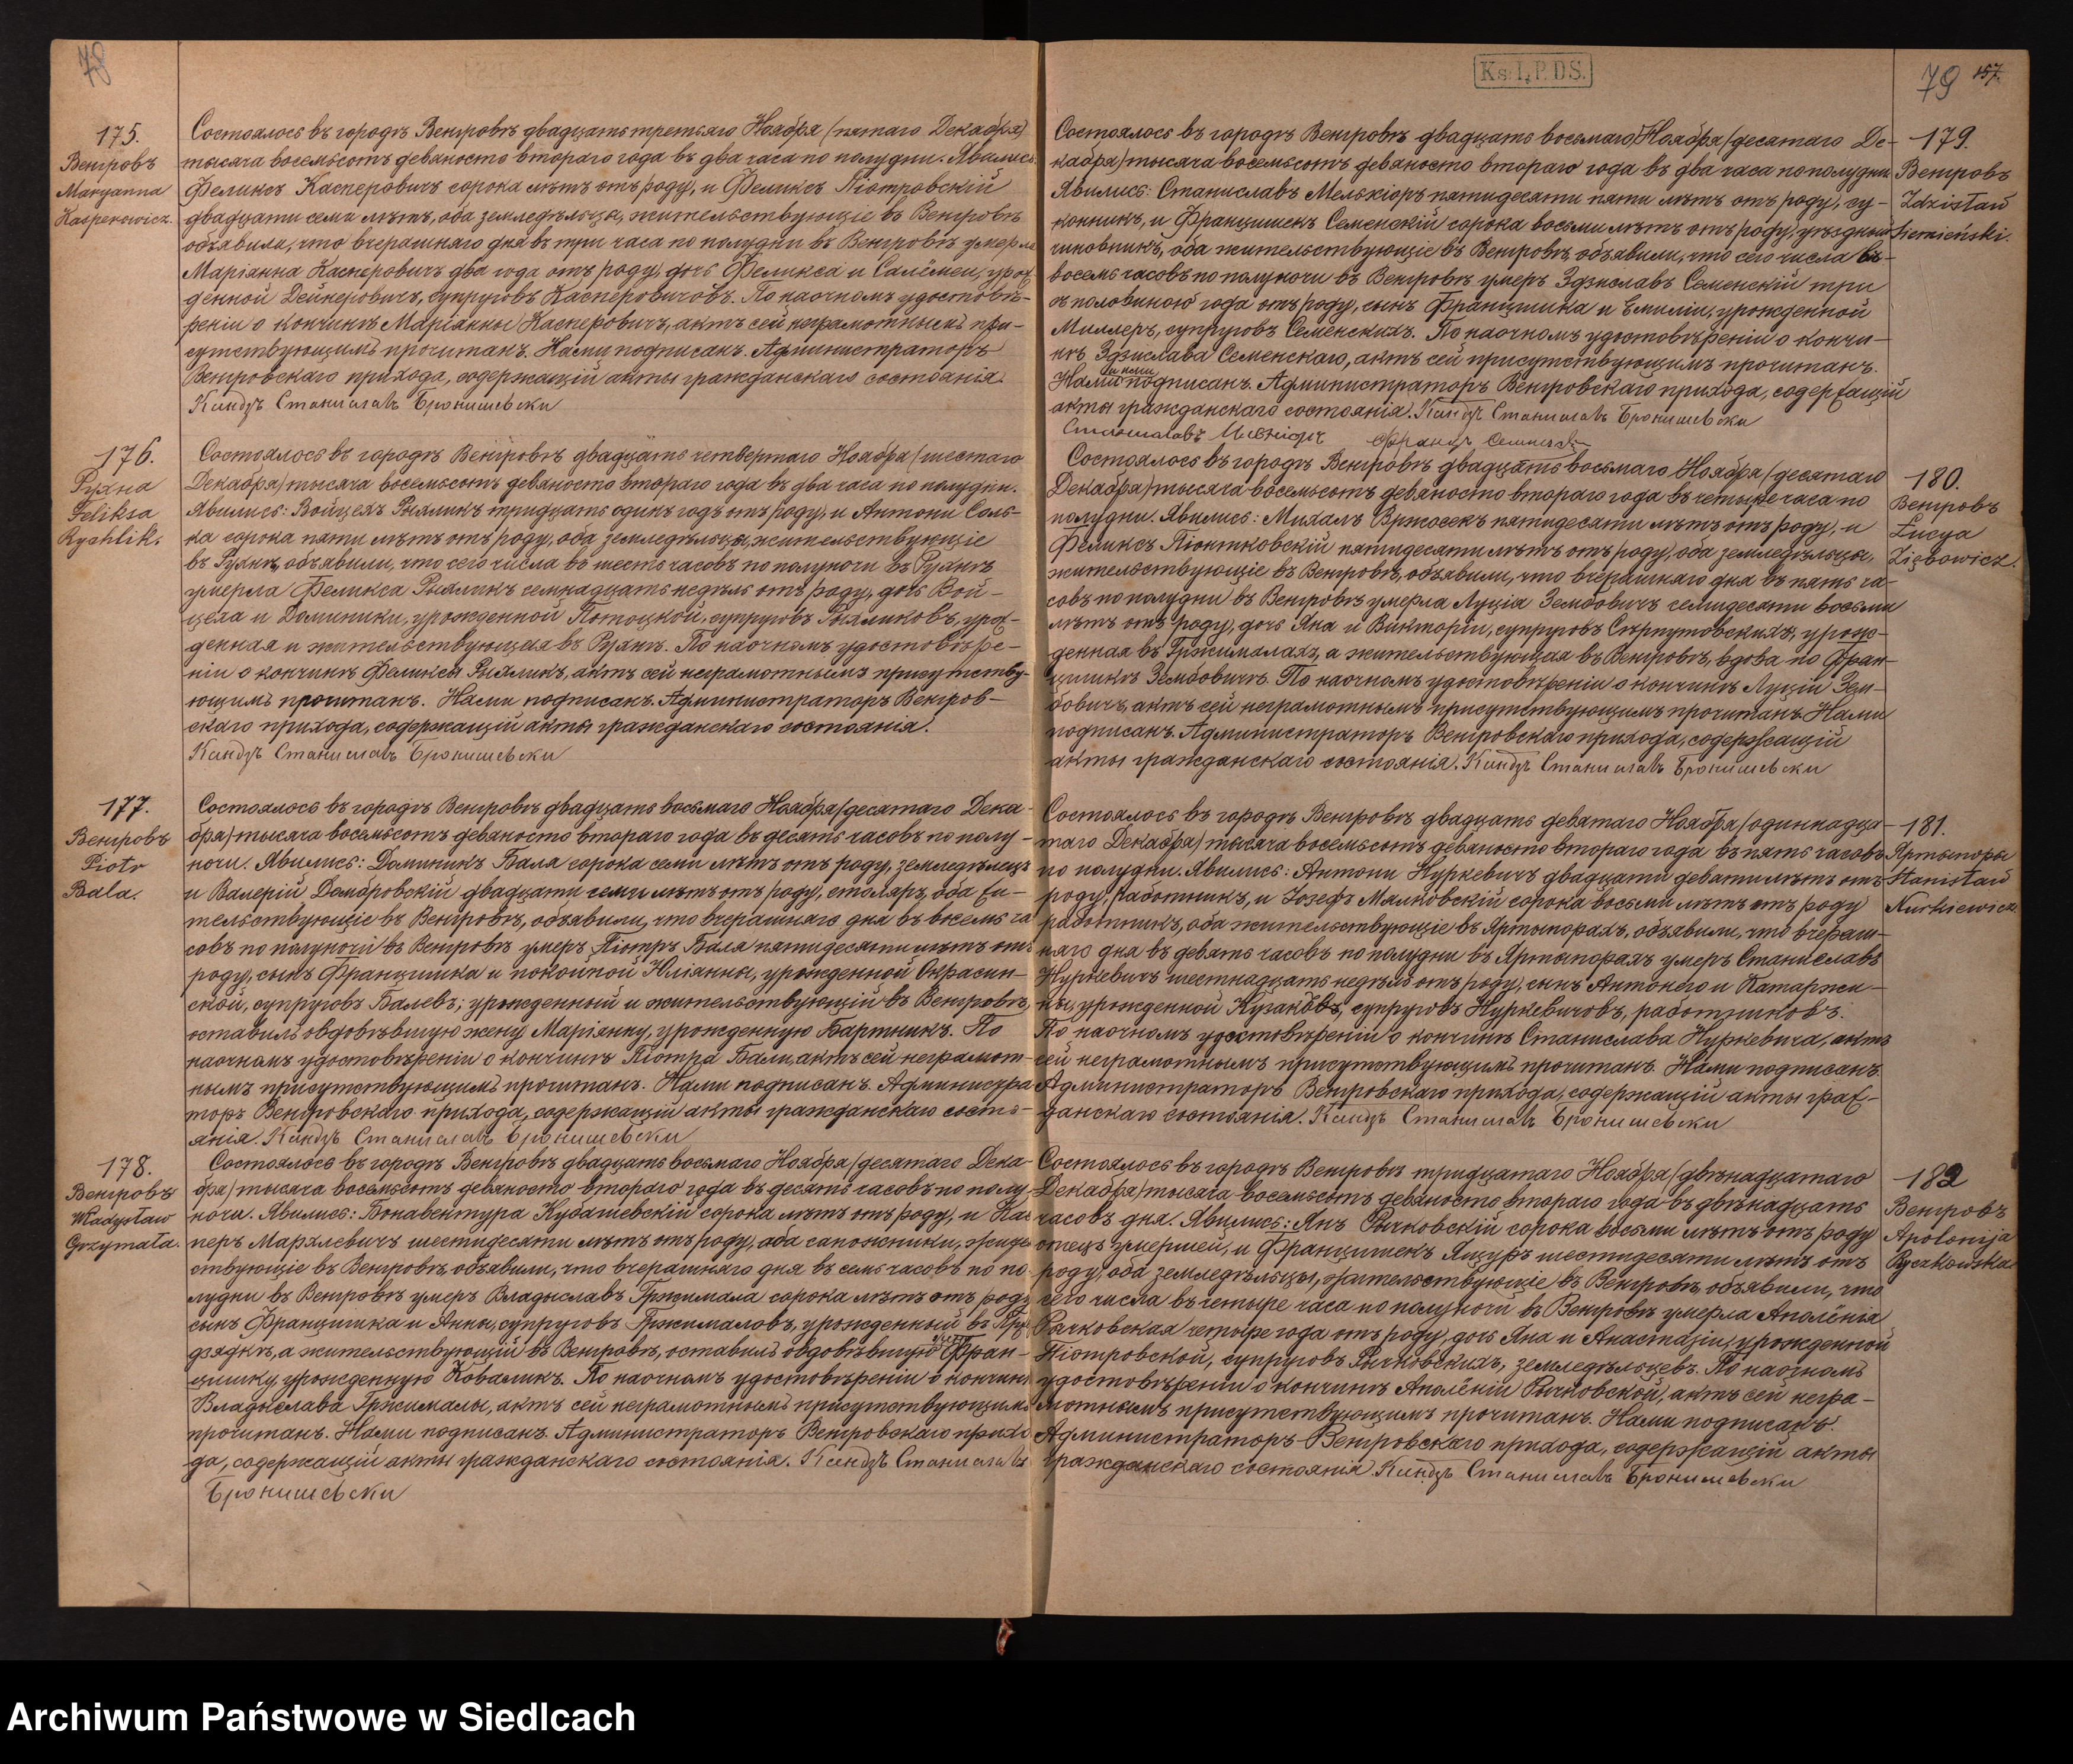 78
175.
Венгровъ
Maryanna
Kasperowicz.
Состоялось въ городѣ Венгровѣ двадцать третьяго Ноября (пятаго Декабря)
тысяча восемьсотъ девяносто втораго года въ два часа по полудни. Явились
Феликсъ Касперовичъ сорока лѣтъ отъ роду, и Феликсъ Піотровскій
двадцати семи лѣтъ, оба земледѣльцы, жительствующіе въ Венгровѣ
объявили, что вчерашняго дня въ три часа по полудни въ Венгровѣ умерла
Маріанна Касперовичъ два года отъ роду, дочь Феликса и Саломеи, урож
денной Дейнеровичъ, супруговъ Касперовичовъ. По наочномъ удостовѣ-
реніи о кончинѣ Маріанны Касперовичъ, актъ сей неграмотнымъ при-
сутствующимъ прочитанъ. Нами подписанъ. Администраторъ
Венгровскаго прихода, содержащій акты гражданскаго состоянія.
Ксіндзъ Станиславъ Бронишевски
176.
Рухна
Feliksa
Rychlik.
Состоялось въ городѣ Венгровѣ двадцать четвертаго Ноября (шестаго
Декабря) тысяча восемьсотъ девяносто втораго года въ два часа по полудни.
Явились: Войцехъ Рыхликъ тридцать одинъ годъ отъ роду, и Антони Соль-
ка сорока пяти лѣтъ отъ роду, оба земледѣльцы, жительствующіе
въ Рухнѣ, объявили, что сего числа въ шесть часовъ по полуночи въ Рухнѣ
умерла Феликса Рыхликъ семнадцать недѣль отъ роду, дочь Вой-
цеха и Доминики, урожденной Потоцкой, супруговъ Рыхликовъ, урож-
денная и жительствующая въ Рухнѣ. По наочномъ удостовѣре-
ніи о кончинѣ Феликсы Рыхликъ, актъ сей неграмотнымъ присутству-
ющимъ прочитанъ. Нами подписанъ. Администраторъ Венгров-
скаго прихода, содержащій акты гражданскаго состоянія.
Ксіндзъ Станиславъ Бронишевски
177.
Венгровъ
Piotr
Bala.
Состоялось въ городѣ Венгровѣ двадцать восьмаго Ноября (десятаго Дека-
бря) тысяча восемьсотъ девяносто втораго года въ десять часовъ по полу-
ночи. Явились: Доминикъ Баля сорока семи лѣтъ отъ роду, земледѣлецъ
и Валерій Домбровскій двадцати семи лѣтъ отъ роду, столяръ, оба жи-
тельствующіе въ Венгровѣ, объявили, что вчерашняго дня въ восемь ча
совъ по полуночи въ Венгровѣ умеръ Піотръ Баля пятидесяти лѣтъ отъ
роду, сынъ Францишка и покойной Юліанны, урожденной Окрасин-
ской, супруговъ Балевъ; урожденный и жительствующій въ Венгровѣ,
оставилъ овдовѣвшую жену Маріянну, урожденную Бартникъ. По
наочномъ удостовѣреніи о кончинѣ Піотра Бали, актъ сей неграмот-
нымъ присутствующимъ прочитанъ. Нами подписанъ. Администра
торъ Венгровскаго прихода, содержащій акты гражданскаго состо-
янія. Ксіндзъ Станиславъ Бронишевски
178.
Венгровъ
Władysław
Grzymała.
Состоялось въ городѣ Венгровѣ двадцать восьмаго Ноября (десятаго Дека-
бря) тысяча восемьсотъ девяносто втораго года въ десять часовъ по полу-
ночи. Явились: Бонавентура Кубашевскій сорока лѣтъ отъ роду, и Кас
перъ Мархлевичъ шестидесяти лѣтъ отъ роду, оба сапожники, жите
ствующіе въ Венгровѣ, объявили, что вчерашняго дня въ семь часовъ по по-
лудни въ Венгровѣ умеръ Владыславъ Гржимала сорока лѣтъ отъ роду
сынъ Францишка и Анны, супруговъ Гржималовъ, урожденный въ Пру-
дзядкѣ, а жительствующій въ Венгровѣ, оставилъ овдовѣвшую жену Фран-
цишку, урожденную Коваликъ. По наочномъ удостовѣреніи о кончинѣ
Владыслава Гржималы, актъ сей неграмотнымъ присутствующимъ
прочитанъ. Нами подписанъ. Администраторъ Венгровскаго прихо
да, содержащій акты гражданскаго состоянія. Ксіндзъ Станиславъ
Бронишевски
Ks. I. P. D S.
79 157.
179.
Венгровъ
Zdzisław
Siemieński.
Состоялось въ городѣ Венгровѣ двадцать восьмаго Ноября (десятаго Де-
кабря) тысяча восемьсотъ девяносто втораго года въ два часа по полудни
Явились: Станиславъ Мельхіоръ пятидесяти пяти лѣтъ отъ роду, су-
конникъ, и Францишекъ Семенскій сорока восьми лѣтъ отъ роду, уѣздный
чиновникъ, оба жительствующіе въ Венгровѣ, объявили, что сего числа въ-
восемь часовъ по полуночи въ Венгровѣ умеръ Здзиславъ Семенскій три
съ половиною года отъ роду, сынъ Францишка и Емиліи, урожденной
Миллеръ, супруговъ Семенскихъ. По наочномъ удостовѣреніи о кончи-
нѣ Здзислава Семенскаго, актъ сей присутствующимъ прочитанъ.
Нами и ими подписанъ. Администраторъ Венгровскаго прихода, содержащій
акты гражданскаго состоянія. Ксіндзъ Станиславъ Бронишевски
Станиславъ
180.
Венгровъ
Łucya
Ziębowicz.
Состоялось въ городѣ Венгровѣ двадцать восьмаго Ноября (десятаго
Декабря) тысяча восемьсотъ девяносто втораго года въ четыре часа по
полудни. Явились: Михалъ Вржосекъ пятидесяти лѣтъ отъ роду, и
Феликсъ Піонтковскій пятидесяти лѣтъ отъ роду, оба земледѣльцы,
жительствующіе въ Венгровѣ, объявили, что вчерашняго дня въ пять ча-
совъ по полудни въ Венгровѣ умерла Луція Зембовичъ семидесяти восьми
лѣтъ отъ роду, дочь Яна и Викторіи, супруговъ Скрпутовскихъ, урож-
денная въ Гржималахъ, а жительствующая въ Венгровѣ, вдова по Фран-
цишкѣ Зембовичѣ. По наочномъ удостовѣреніи о кончинѣ Луціи Зем-
бовичъ, актъ сей неграмотнымъ присутствующимъ прочитанъ. Нами
подписанъ. Администраторъ Венгровскаго прихода, содержащій
акты гражданскаго состоянія. Ксіндзъ Станиславъ Бронишевски
181.
Яртыпоры
Stanisław
Nurkiewicz
Состоялось въ городѣ Венгровѣ двадцать девятаго Ноября (одиннадца-
таго Декабря) тысяча восемьсотъ девяносто втораго года въ пять часовъ
по полудни. Явились: Антони Нуркевичъ двадцати девяти лѣтъ отъ
роду, работникъ, и Іозефъ Малковскій сорока восьми лѣтъ отъ роду
работникъ, оба жительствующіе въ Яртыпорахъ, объявили, что вчераш-
няго дня въ девять часовъ по полудни въ Яртыпорахъ умеръ Станиславъ
Нуркевичъ шестнадцать недѣль отъ роду, сынъ Антонего и Катаржи-
ны, урожденной Кузаковъ, супруговъ Нуркевичовъ, работниковъ.
По наочномъ удостовѣреніи о кончинѣ Станислава Нуркевича, актъ
сей неграмотнымъ присутствующимъ прочитанъ. Нами подписанъ.
Администраторъ Венгровскаго прихода, содержащій акты граж-
данскаго состоянія. Ксіндзъ Станиславъ Бронишевски
182
Венгровъ
Apolonija
Ryczkowska
Состоялось въ городѣ Венгровѣ тридцатаго Ноября (двѣнадцатаго
Декабря) тысяча восемьсотъ девяносто втораго года въ двѣнадцать
часовъ дня. Явились: Янъ Рычковскій сорока восьми лѣтъ отъ роду
отецъ умершей, и Францишекъ Ящуръ шестидесяти лѣтъ отъ
роду, оба земледѣльцы, жительствующіе въ Венгровѣ, объявили, что
сего числа въ четыре часа по полуночи въ Венгровѣ умерла Аполёнія
Рычковская четыре года отъ роду, дочь Яна и Анастазіи, урожденной
Піотровской, супруговъ Рычковскихъ, земледѣльцевъ. По наочномъ
удостовѣреніи о кончинѣ Аполёніи Рычковской, актъ сей негра-
мотнымъ присутствующимъ прочитанъ. Нами подписанъ.
Администраторъ Венгровскаго прихода, содержащій акты
гражданскаго состоянія. Ксіндзъ Станиславъ Бронишевски
Archiwum Państwowe w Siedlcach